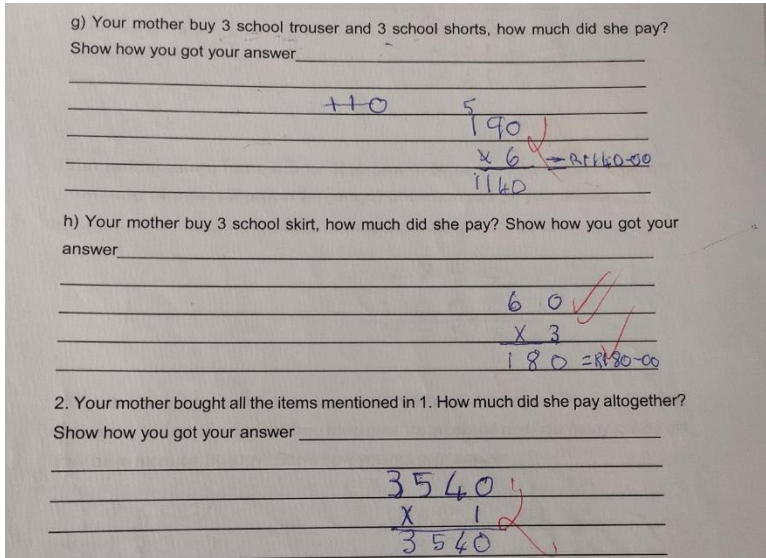 g) Your mother buy 3 school trouser and 3 school shorts, how much did she pay?
Show how you got your answer
110
5
190
x 6 = R1140-00
1140
h) Your mother buy 3 school skirt, how much did she pay? Show how you got your
answer
6 0
x 3
180 = R180-00
2. Your mother bought all the items mentioned in 1. How much did she pay altogether?
Show how you got your answer
3540
x 1
3540